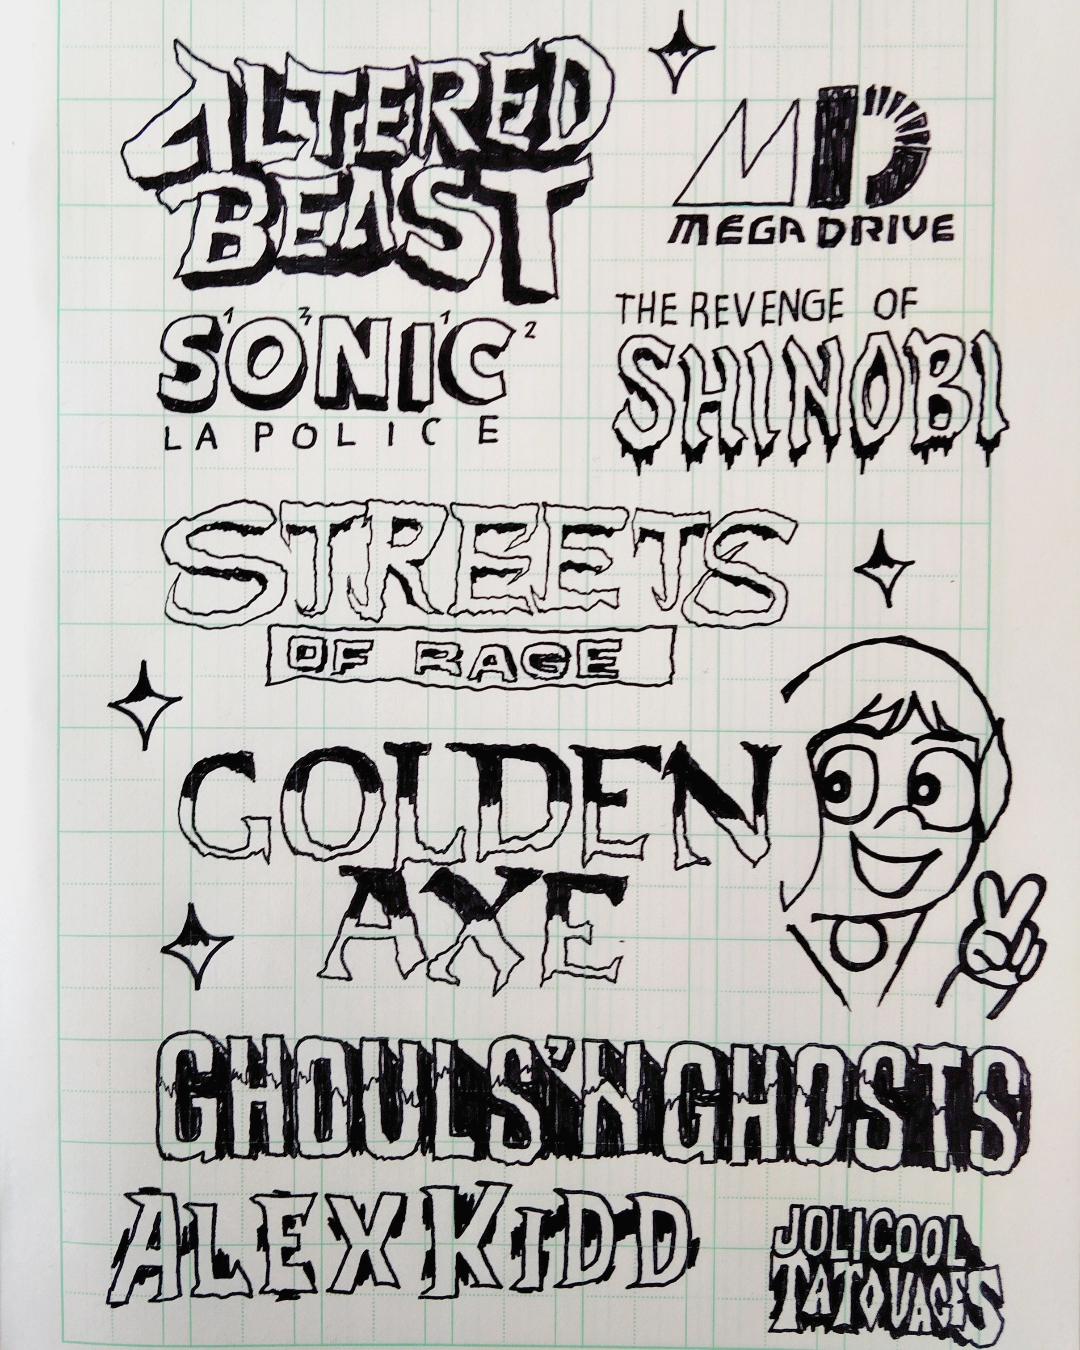 ALTERED
BEAST
MD
MEGA DRIVE
S'O'NI'C
1 3 1 2
LA POLICE
THE REVENGE OF
SHINOBI
STREETS
OF RAGE
GOLDEN
AXE
GHOULS'N GHOSTS
ALEX KIDD
JOLICOOL
TATOUAGES